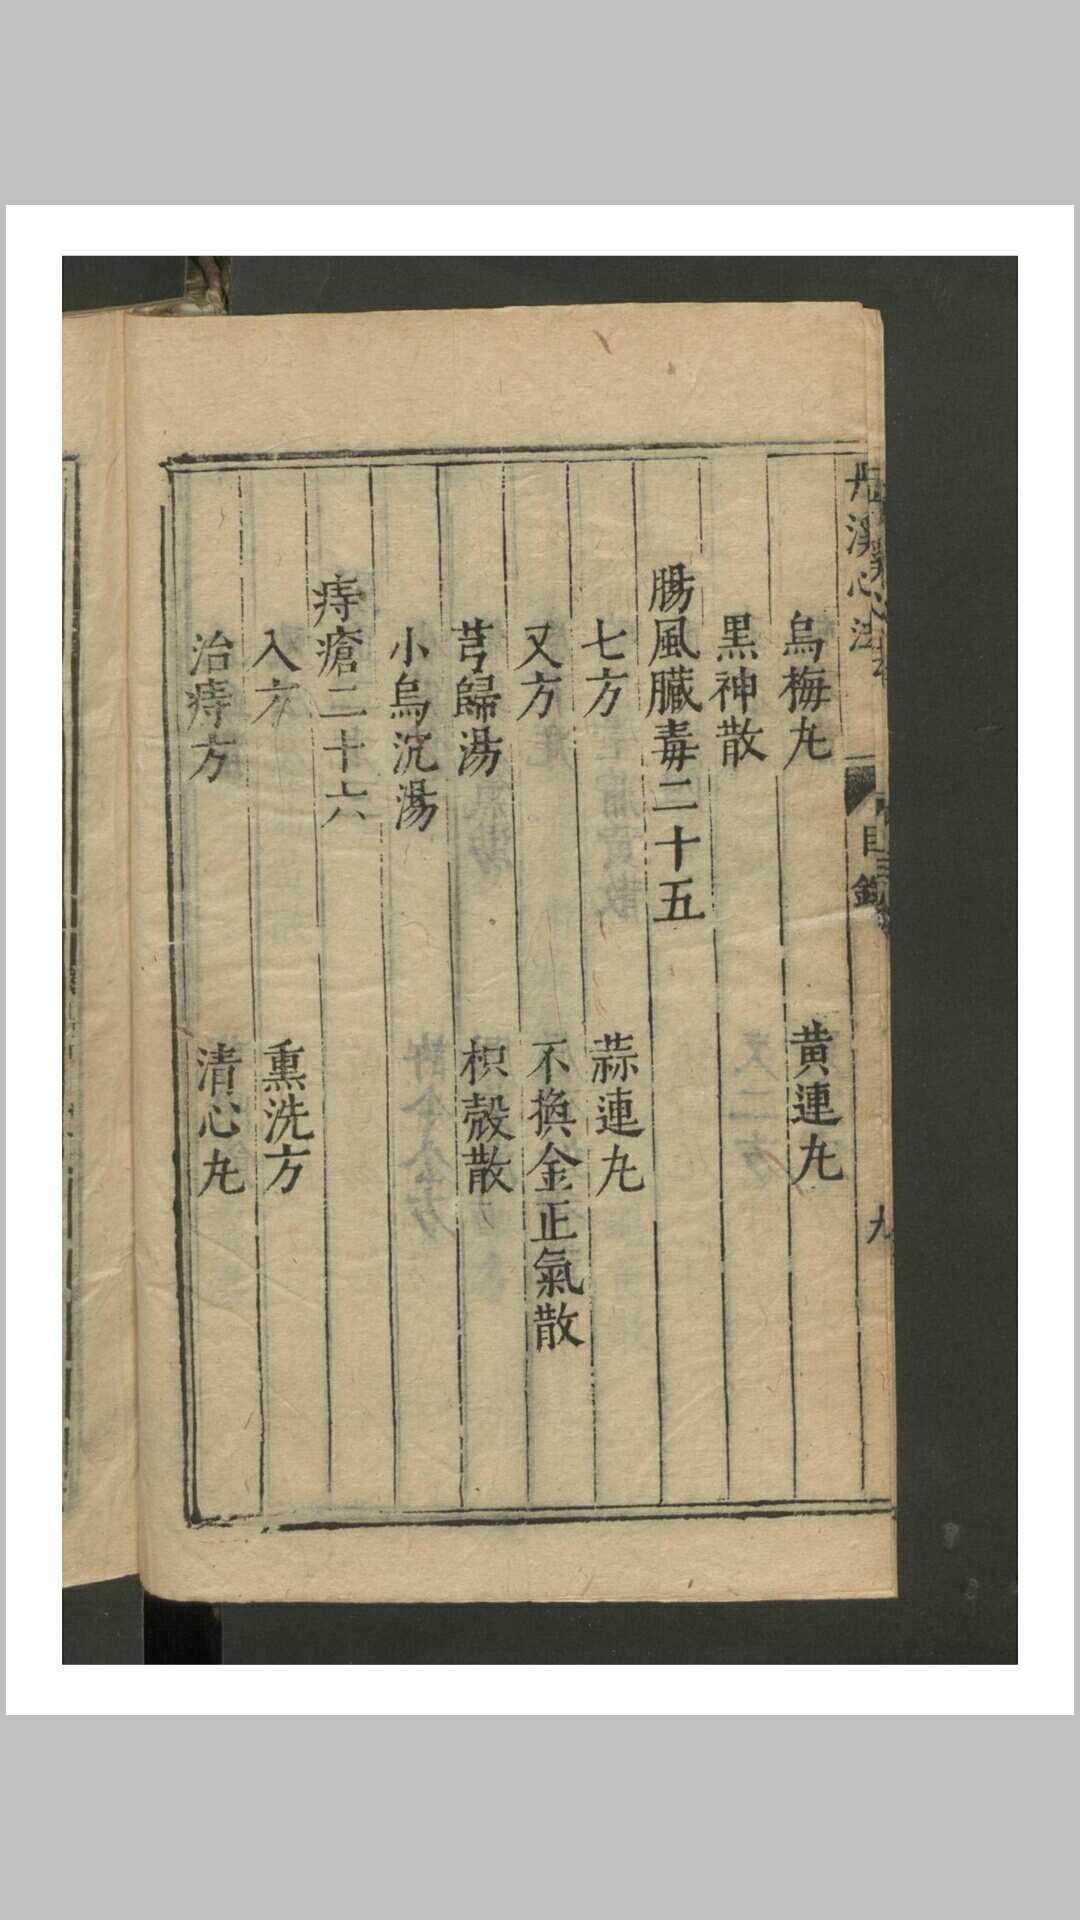 丹溪心法
目錄
九
烏梅丸　黄連丸
黒神散
腸風臟毒二十五
七方　蒜連丸
又方　不換金正氣散
芎歸湯　枳殼散
小烏沉湯
痔瘡二十六
入方　熏洗方
治痔方　清心丸